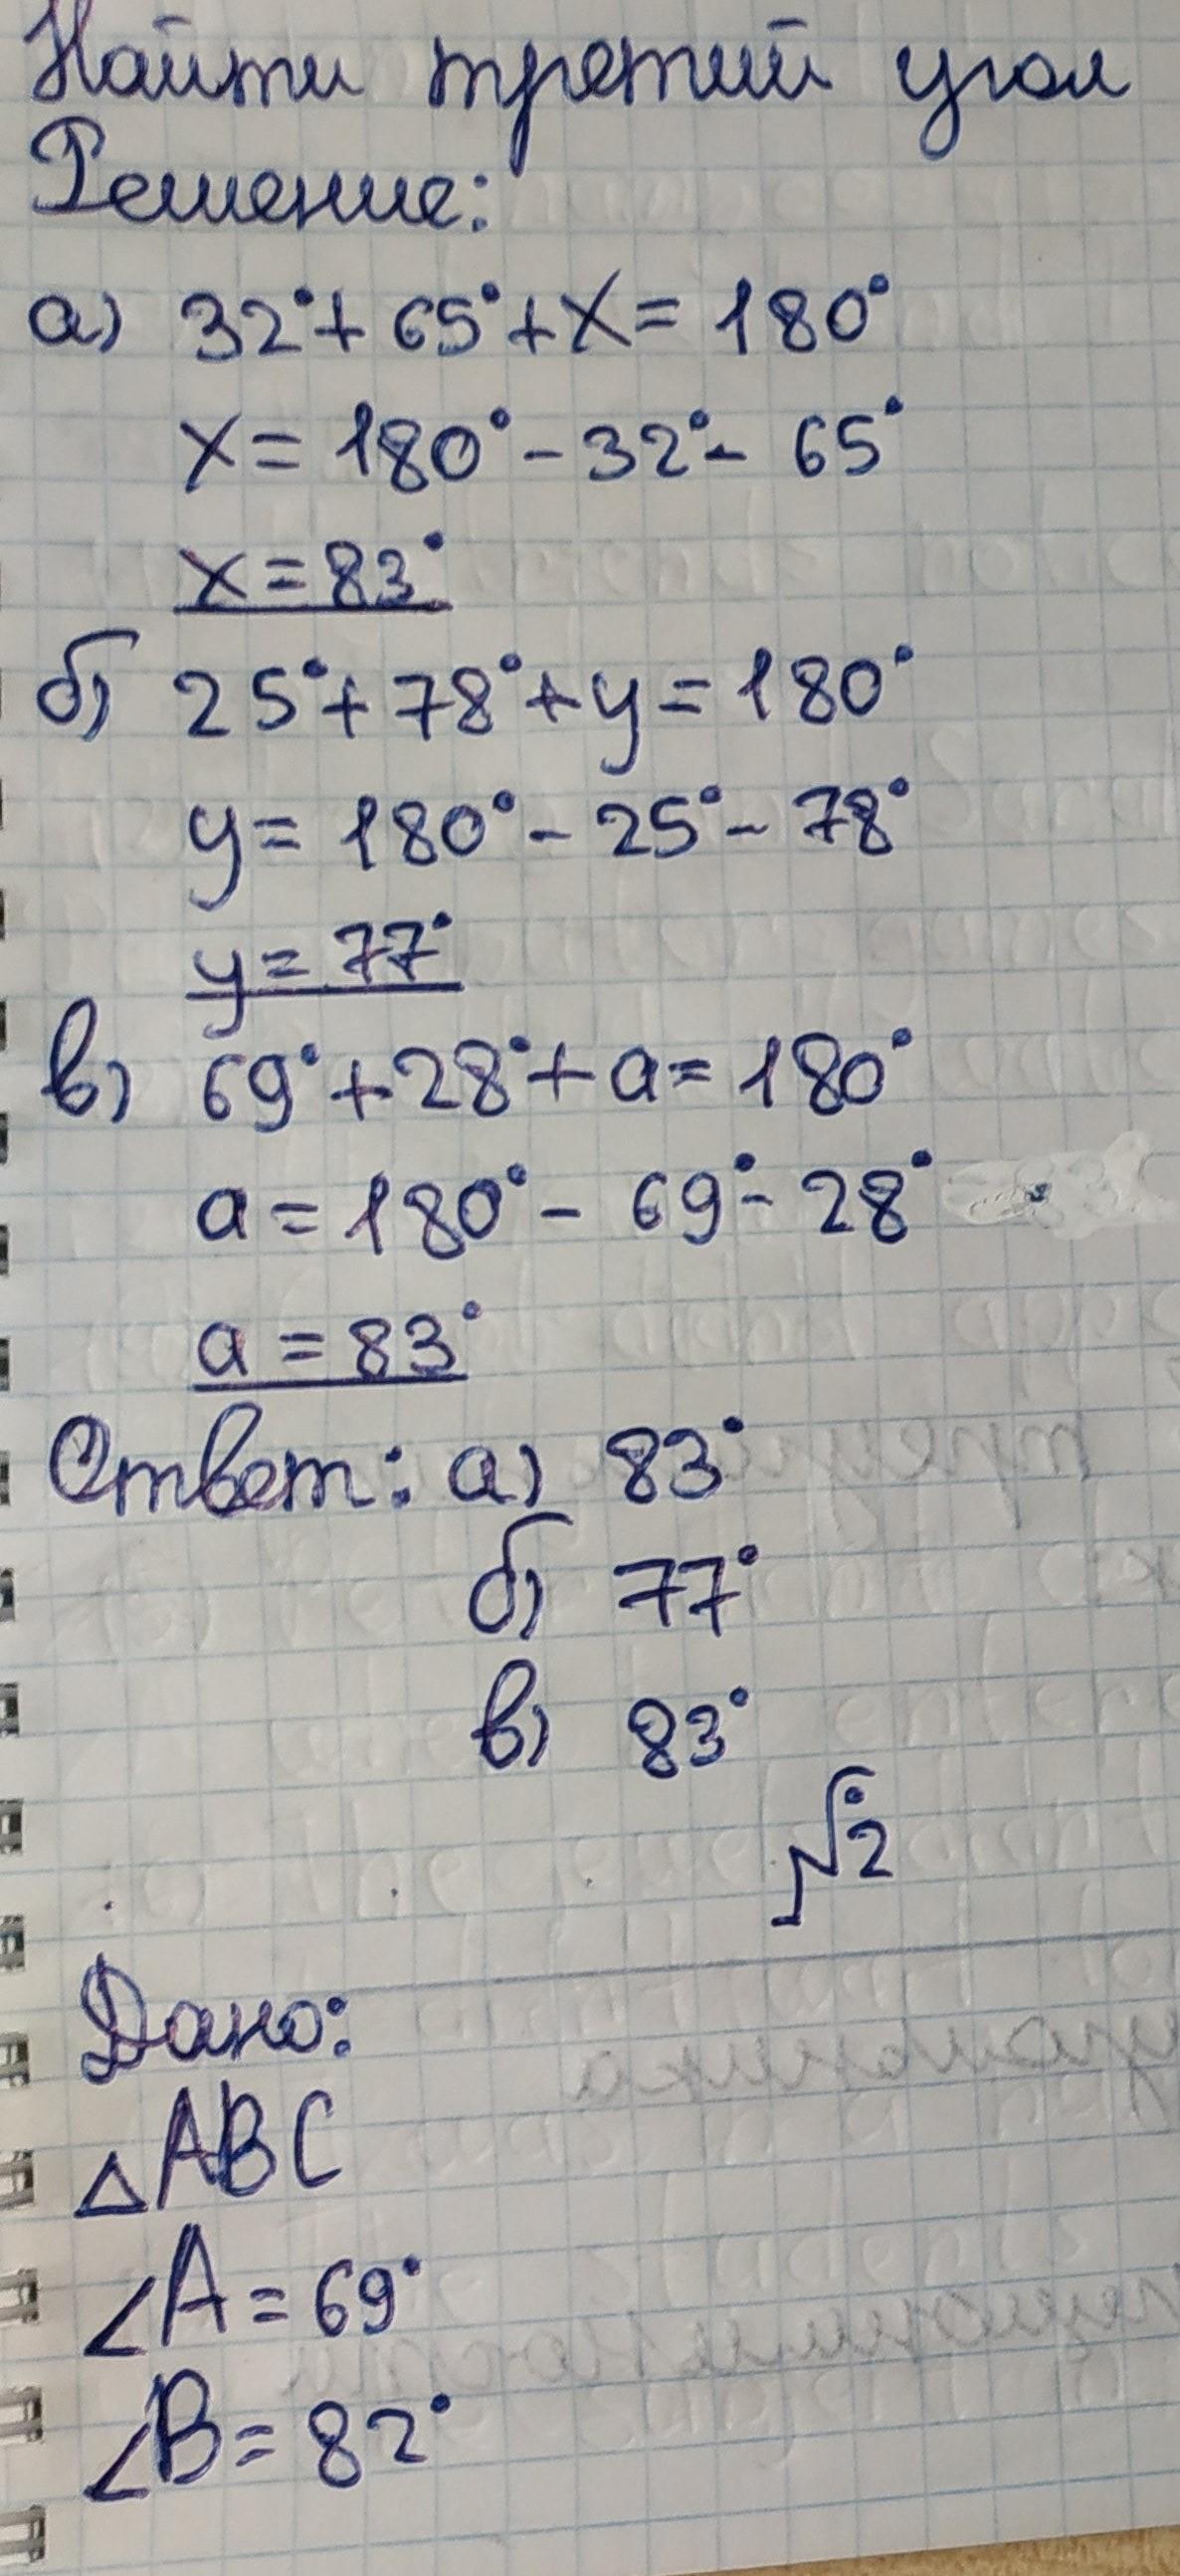 Найти третий угол
Решение:
а) 32°+ 65°+x= 180°
x= 180°- 32°- 65°
x=83°
б) 25°+78°+y=180°
y= 180°- 25°- 78°
y= 77°
в) 69°+28°+a=180°
a=180°- 69°- 28°
a=83°
Ответ: а) 83°
б) 77°
в) 83°
№2
Дано:
△ABC
∠A=69°
∠B=82°